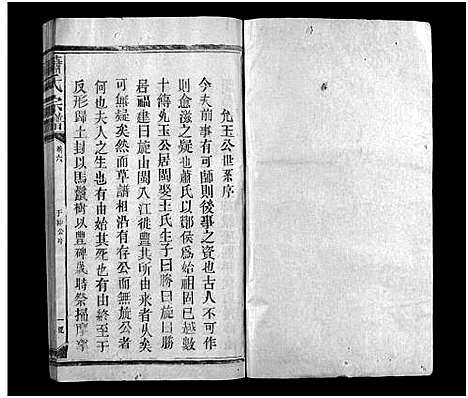 允玉公世系序
今夫前事有可師則後事之資也古人不可作
則愈滋之疑也蕭氏以酇侯爲始祖曰越數
十傳允玉公居閩娶王氏生子曰勝曰旋曰
居福建曰旋由閩入江徙豐其所由來者矣
可無疑矣然而草譜相沿有存公而無旋公者
何也夫人之生也有由始其死也有由終至于
反形歸土封以馬鬣樹以豐碑歲時祭掃摩
蕭氏宗譜
卷六
公
一